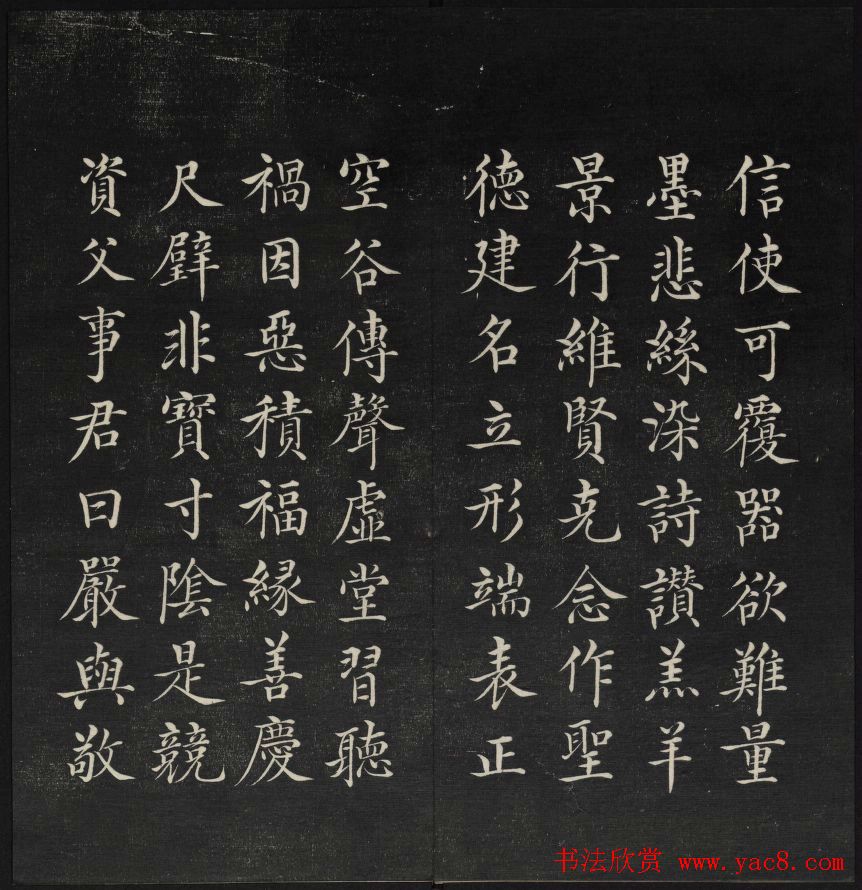 信使可覆器欲難量
墨悲絲染詩讃羔羊
景行維賢克念作聖
德建名立形端表正
空谷傳聲虛堂習聽
禍因惡積福緣善慶
尺璧非寶寸陰是競
資父事君曰嚴與敬
书法欣赏 www.yac8.com